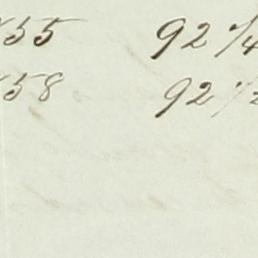 55 92 1/4
58 92 1/2